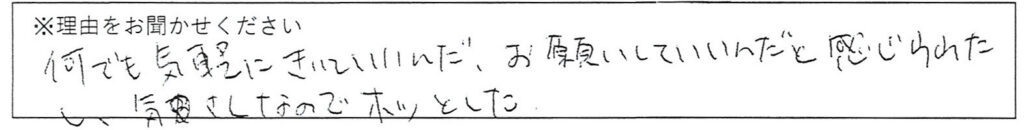 ※理由をお聞かせください
何でも気軽にきいていいんだ、お願いしていいんだと感じられた
し、気さくなのでホッとした.